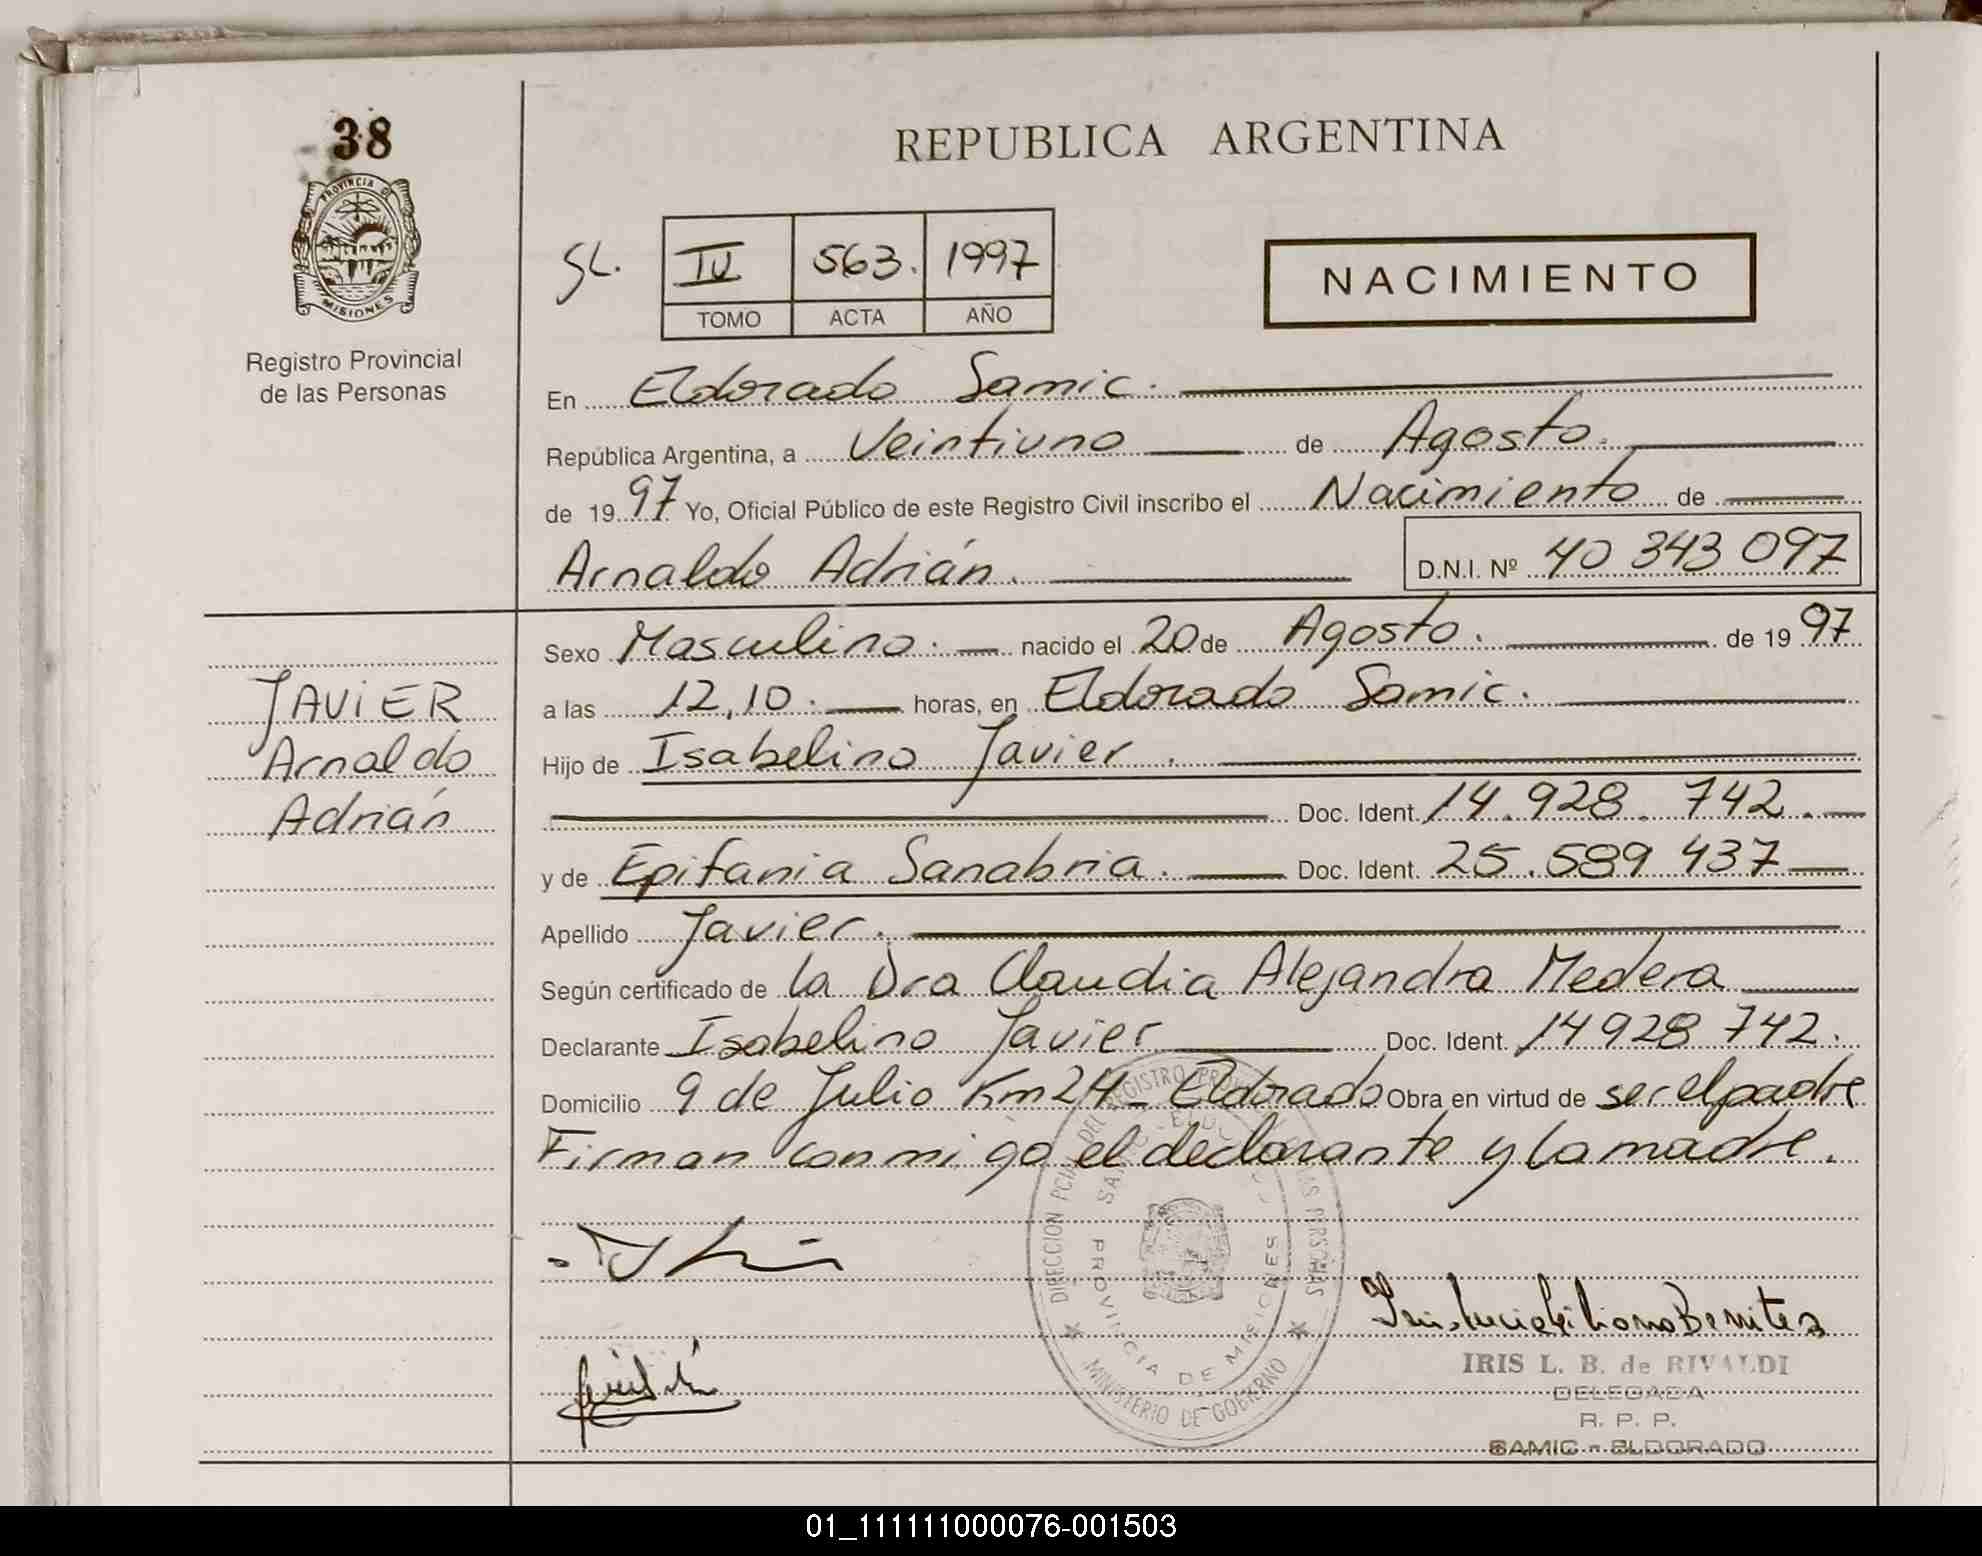 38
PROVINCIA D
MISIONES
Registro Provincial
de las Personas
REPUBLICA ARGENTINA
SL.
IV 563. 1997
TOMO ACTA AÑO
NACIMIENTO
En Eldorado Samic.
República Argentina, a Veintiuno de Agosto.
de 1997 Yo, Oficial Público de este Registro Civil inscribo el Nacimiento de
Arnaldo Adrián. D.N.I. Nº 40 343 097
JAVIER
Arnaldo
Adrián
Sexo Masculino. nacido el 20 de Agosto. de 1997
a las 12,10. horas, en Eldorado Samic.
Hijo de Isabelino Javier.
Doc. Ident. 14.928.742.
y de Epifania Sanabria. Doc. Ident. 25.589 437
Apellido Javier.
Según certificado de la Dra Claudia Alejandra Medera
Declarante Isabelino Javier Doc. Ident. 14928 742.
Domicilio 9 de Julio Km 24 - Eldorado Obra en virtud de ser el padre
Firman conmigo el declarante y la madre.
DIRECCION PCIAL DEL REGISTRO PROV DE LAS PERSONAS
PROVINCIA DE MISIONES
MINISTERIO DE GOBIERNO
Benitez
IRIS L. B. de RIVALDI
DELEGADA
R. P. P.
SAMIC - ELDORADO
01_111111000076-001503